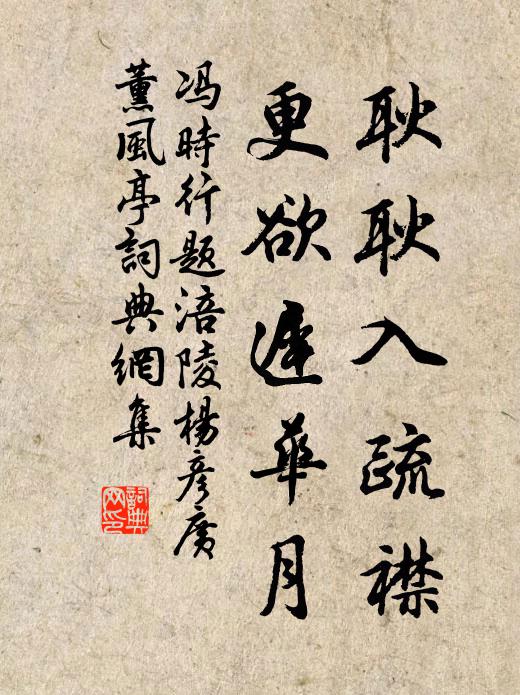 耿耿入疏襟
更欲遲華月
馮時行題涪陵楊彦廣
薰風亭詞典網集
詞典网印